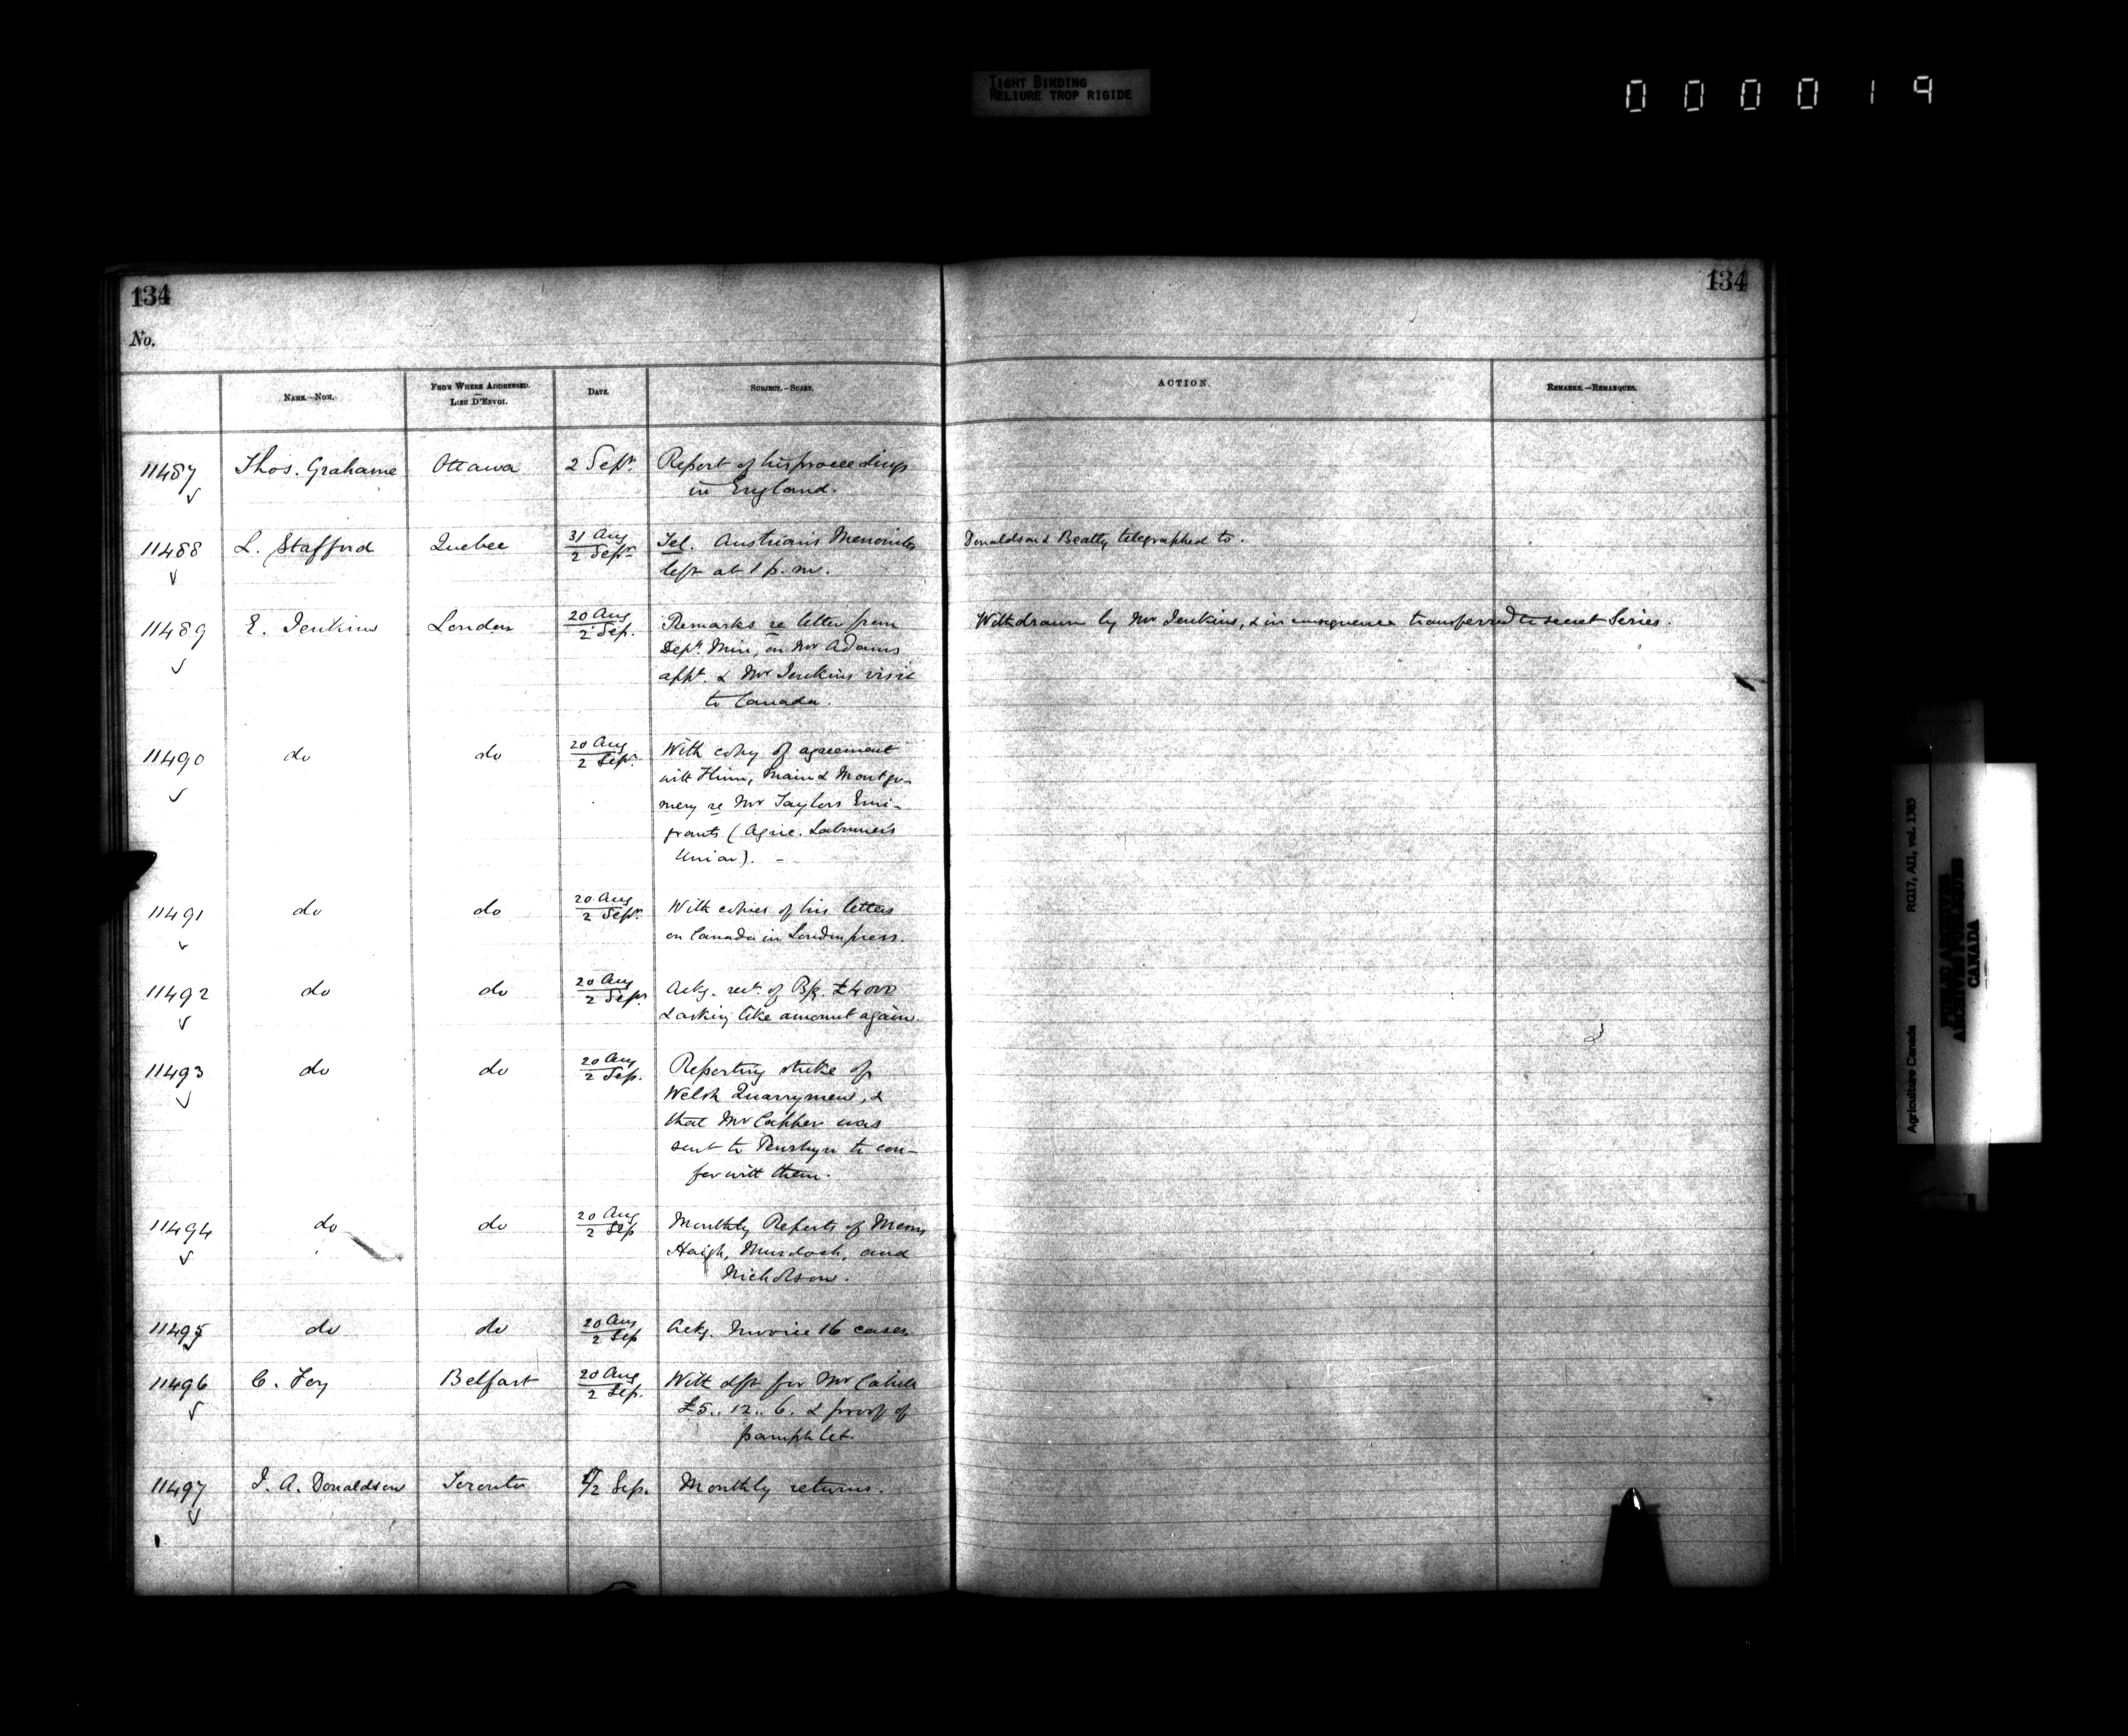 TIGHT BINDING
RELIURE TROP RIGIDE
000019
134
134
No.
NAME.—NOM.
FROM WHERE ADDRESSED.
LIEU D'ENVOI.
DATE.
SUBJECT.—SUJET.
ACTION.
REMARKS.—REMARQUES.
11487 Thos. Grahame Ottawa 2 Sept. Report of his proceedings
in England.
11488 L. Stafford Quebec 31 Aug
2 Sept. Tel. Austrians Mennonites
left at 1 p.m.
Donaldson & Beatty telegraphed to.
11489 E. Jenkins London 20 Aug
2 Sep. Remarks re letter from
Dept. Min, on Mr Adams
appt. & Mr Jenkins visit
to Canada.
Withdrawn by Mr Jenkins, & in consequence transferred to secret Series.
11490 do do 20 Aug
2 Sep. With copy of agreement
with Flinn, Main & Montgo-
mery re Mr Taylors Emi-
grants (Agric. Labourer's
Union). -
11491 do do 20 Aug
2 Sep. With copies of his letters
on Canada in London press.
11492 do do 20 Aug
2 Sep. Ackg. rect. of £4000
& asking like amount again.
11493 do do 20 Aug
2 Sep. Reporting strike of
Welsh Quarrymen, &
that Mr Capper was
sent to Penrhyn to con-
fer with them.
11494 do do 20 Aug
2 Sep Monthly Reports of Messrs
Haigh, Murdoch, and
Nicholson.
11495 do do 20 Aug
2 Sep Ackg. Invoice 16 cases.
11496 C. Foy Belfast 20 Aug
2 Sep. With dft for Mr
£5.. 12.. 6. & proof of
pamphlet.
11497 J. A. Donaldson Toronto 2 Sep. Monthly returns.
Agriculture Canada RG17, AII, vol. 1385
PUBLIC ARCHIVES
ARCHIVES PUBLIQUES
CANADA